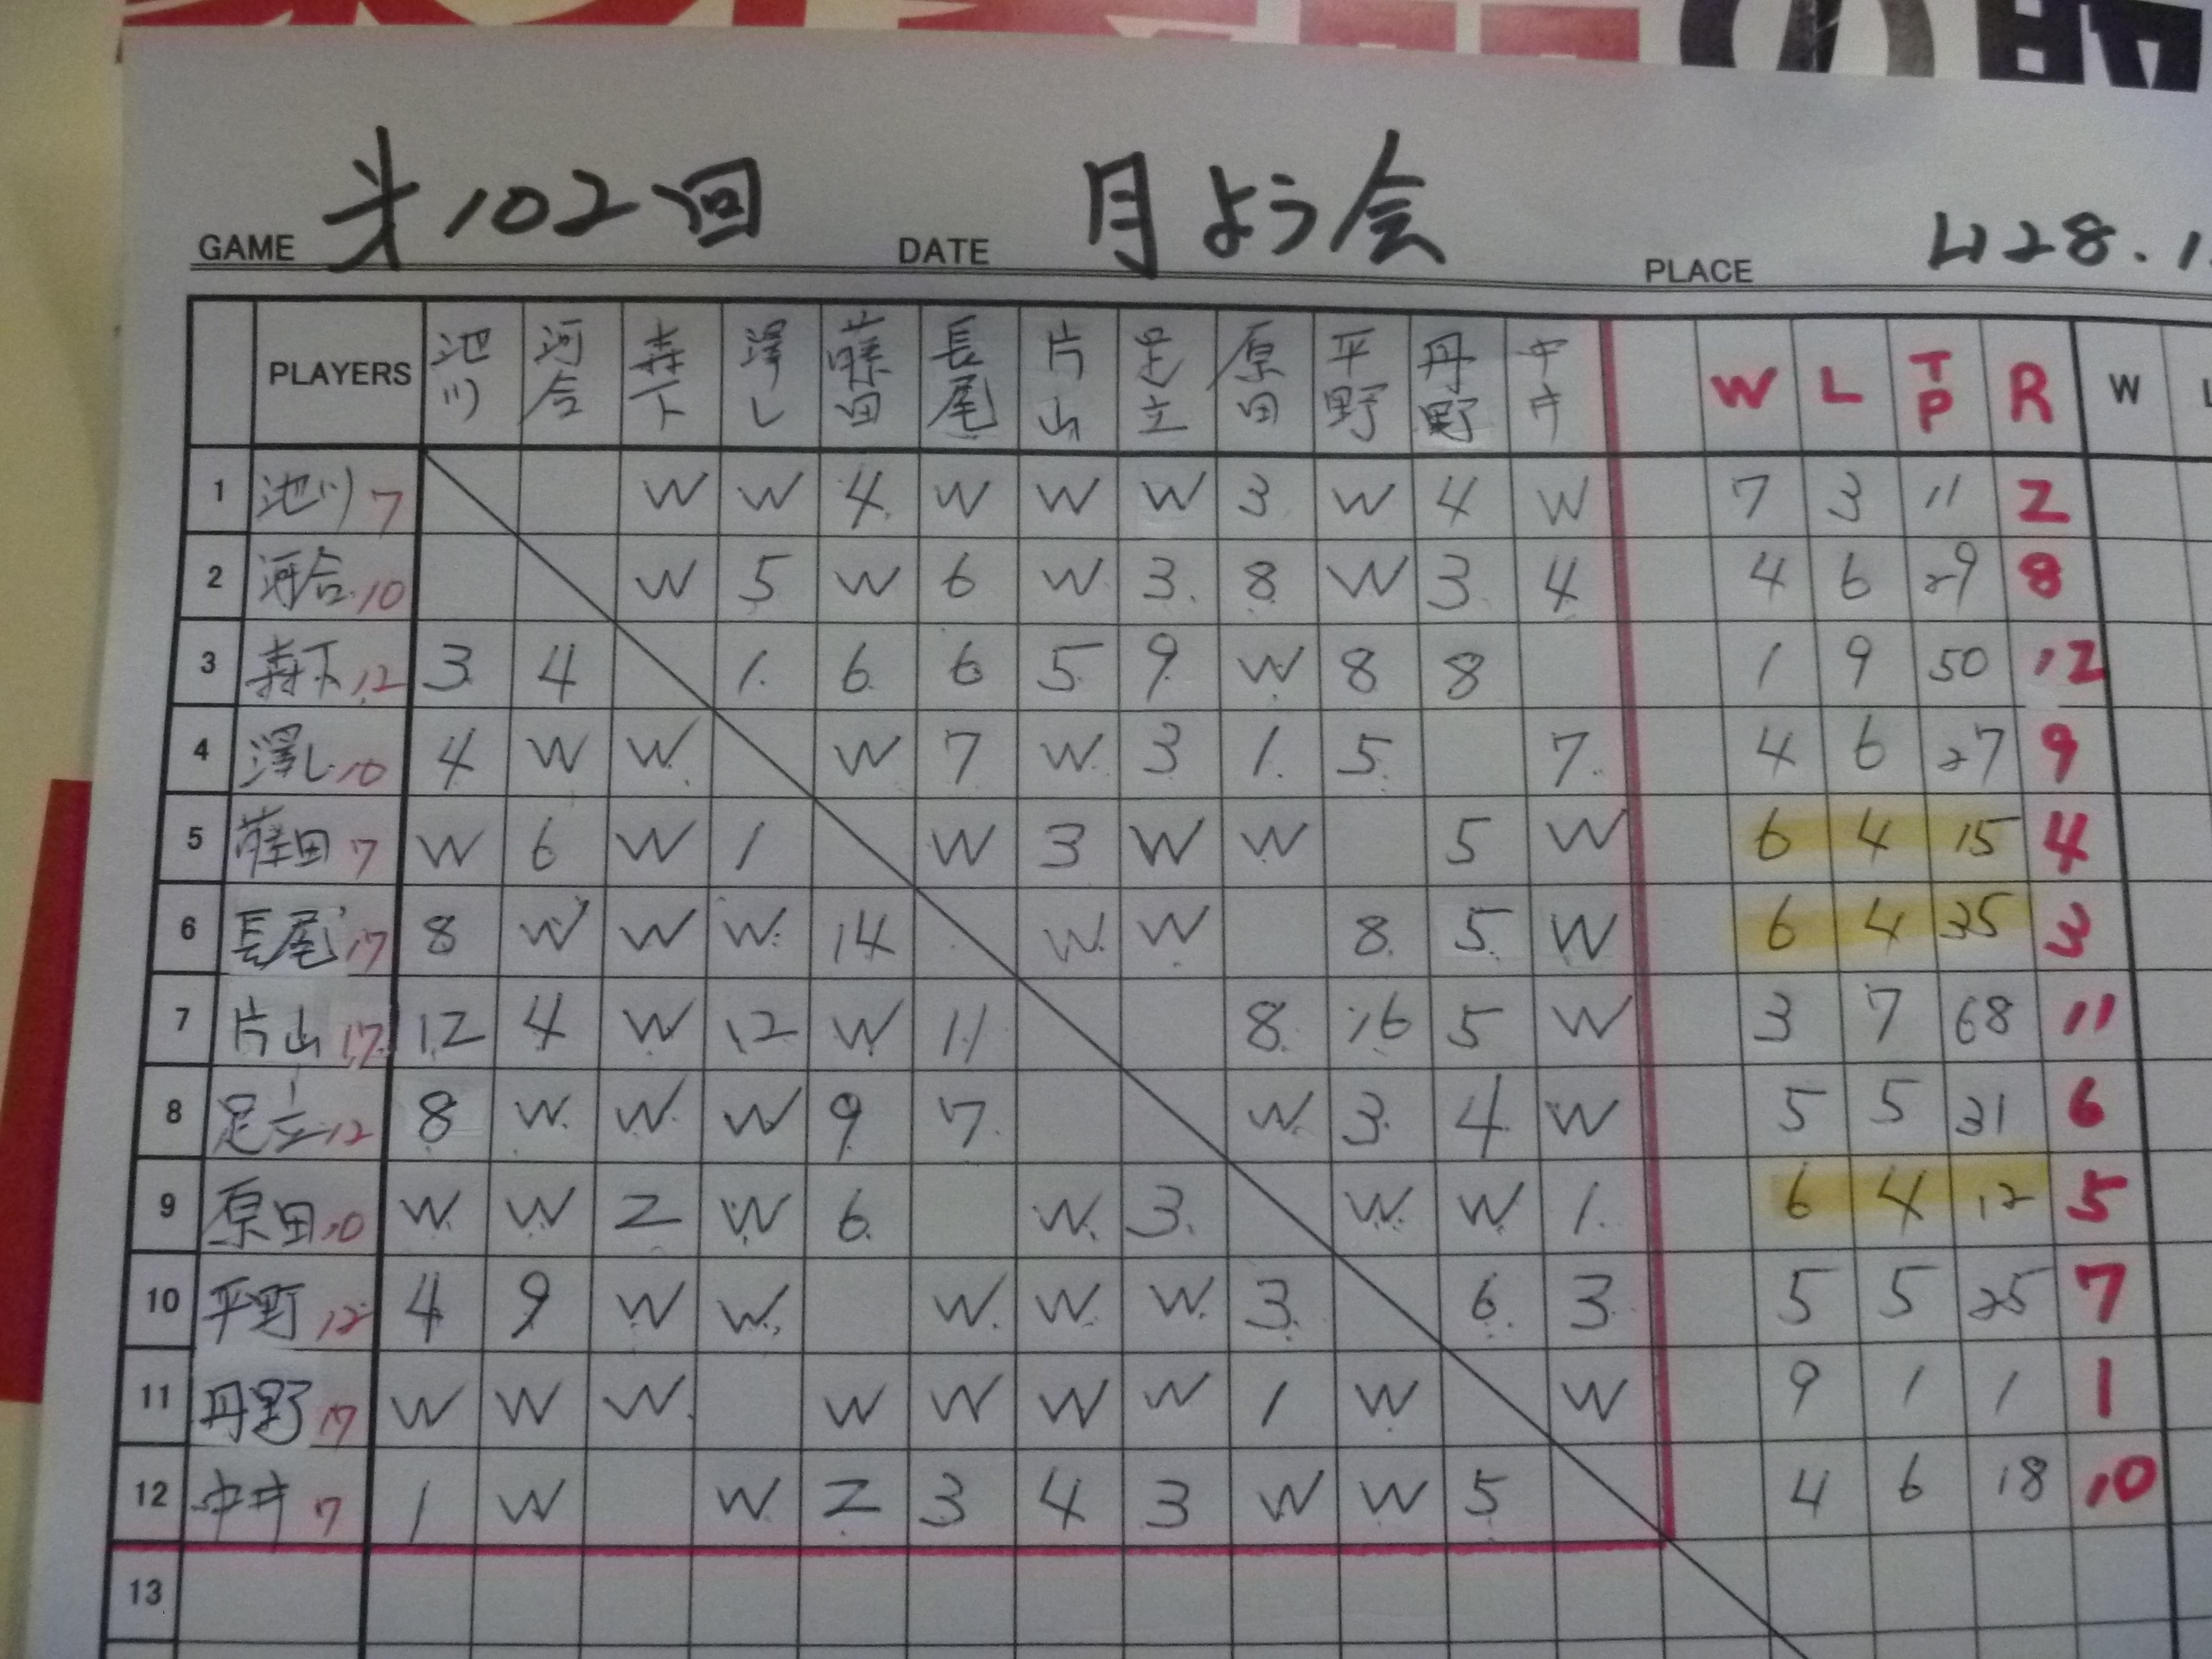 GAME 第102回 DATE 月よう会 PLACE H28.1.
PLAYERS 池川 河合 森下 澤し 藤田 長尾 片山 足立 原田 平野 丹野 中井 W L TP R W L
1 池川 7 W W 4 W W W 3 W 4 W 7 3 11 2
2 河合 10 W 5 W 6 W 3 8 W 3 4 4 6 29 8
3 森下 12 3 4 1 6 6 5 9 W 8 8 1 9 50 12
4 澤し 10 4 W W W 7 W 3 1 5 7 4 6 27 9
5 藤田 7 W 6 W 1 W 3 W W 5 W 6 4 15 4
6 長尾 17 8 W W W 14 W W 8 5 W 6 4 35 3
7 片山 17 12 4 W 12 W 11 8 16 5 W 3 7 68 11
8 足立 12 8 W W W 9 7 W 3 4 W 5 5 31 6
9 原田 10 W W 2 W 6 W 3 W W 1 6 4 12 5
10 平野 12 4 9 W W W W W 3 6 3 5 5 25 7
11 丹野 17 W W W W W W W 1 W W 9 1 1 1
12 中井 7 1 W W 2 3 4 3 W W 5 4 6 18 10
13